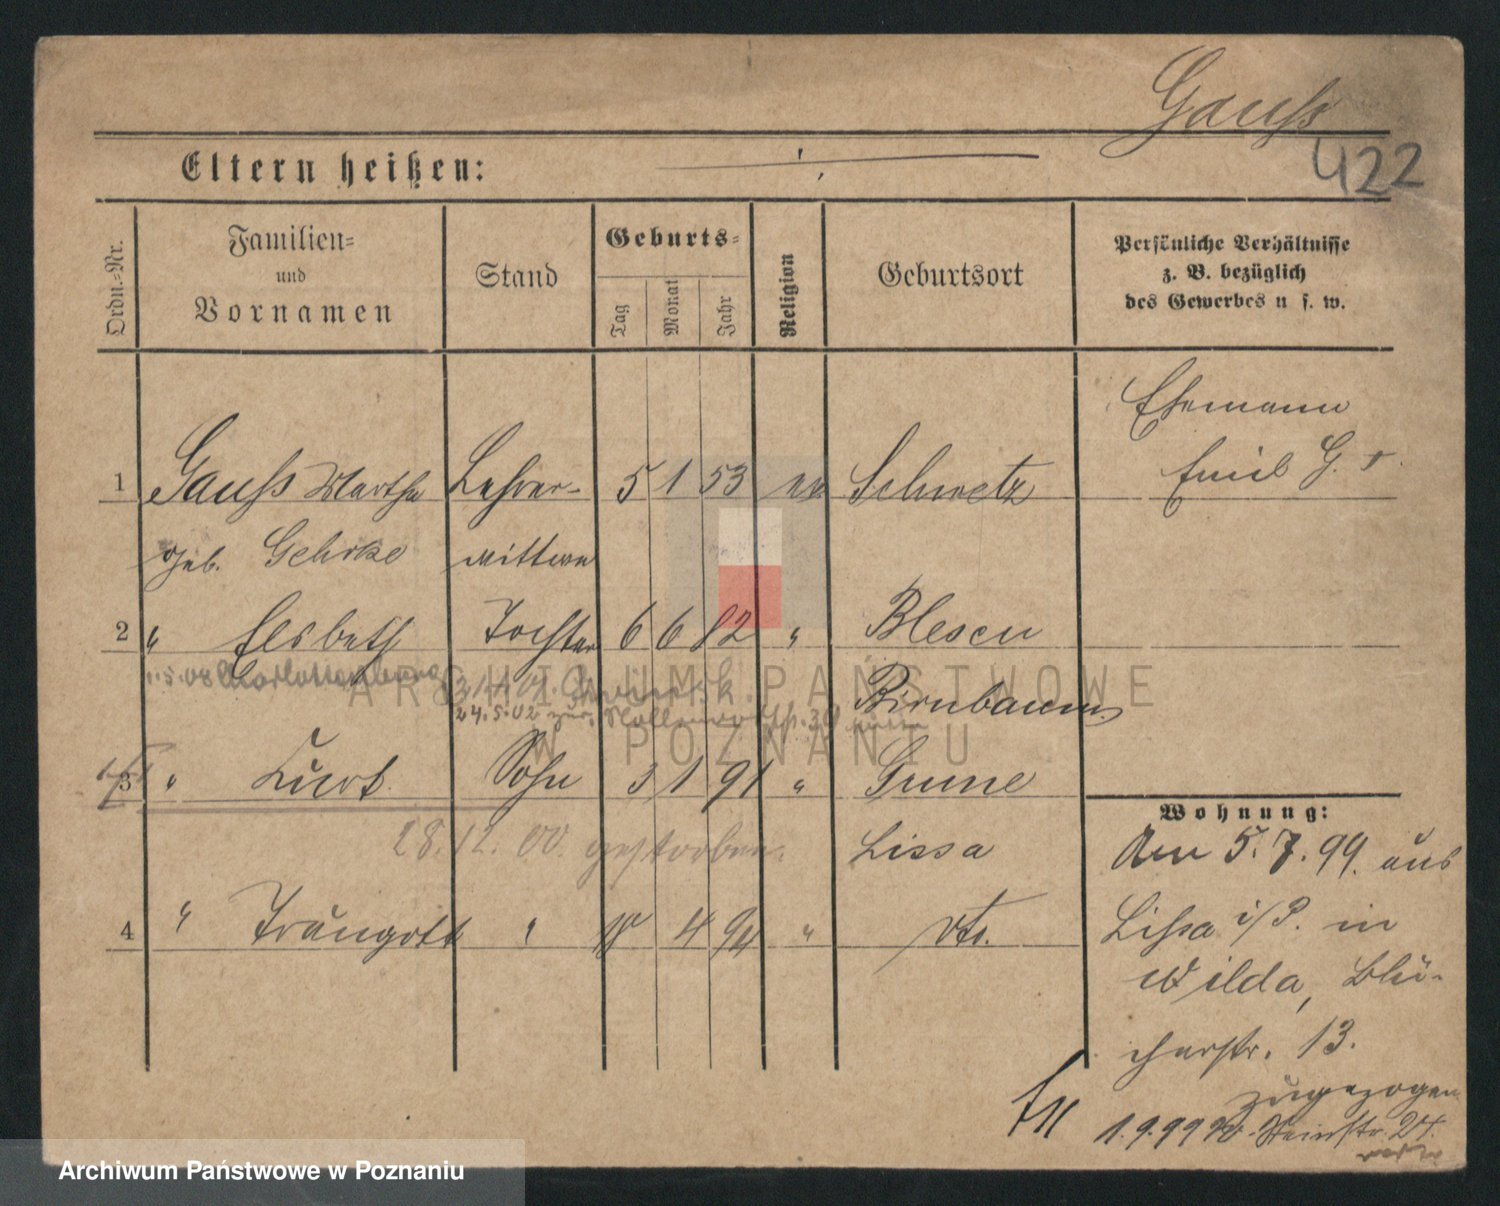 Gauss
422
Eltern heißen:
Ordn.-Nr.
Familien-
und
Vornamen
Stand
Geburts-
Tag
Monat
Jahr
Religion
Geburtsort
Persönliche Verhältnisse
z. B. bezüglich
des Gewerbes u. s. w.
Ehemann
Emil G. †.
1 Gauss Martha Lehrer- 5 1 53 ev Schwetz
geb. Gehrke wittwe
2 " Elsbeth Tochter 6 6 82 " Blesen
1.5.08 Charlottenburg
Birnbaum
24.5.02 zur.
3 " Kurt Sohn 3 1 91 " Grune
28.12.00. gestorben. Lissa
4 " Traugott " 18 4 94 " dto.
Wohnung:
Am 5.7.99. aus
Lissa i/P. in
Wilda, Blü-
cherstr. 13.
zugezogen
1.9.99 W. 24.
ARCHIWUM PAŃSTWOWE
W POZNANIU
Archiwum Państwowe w Poznaniu